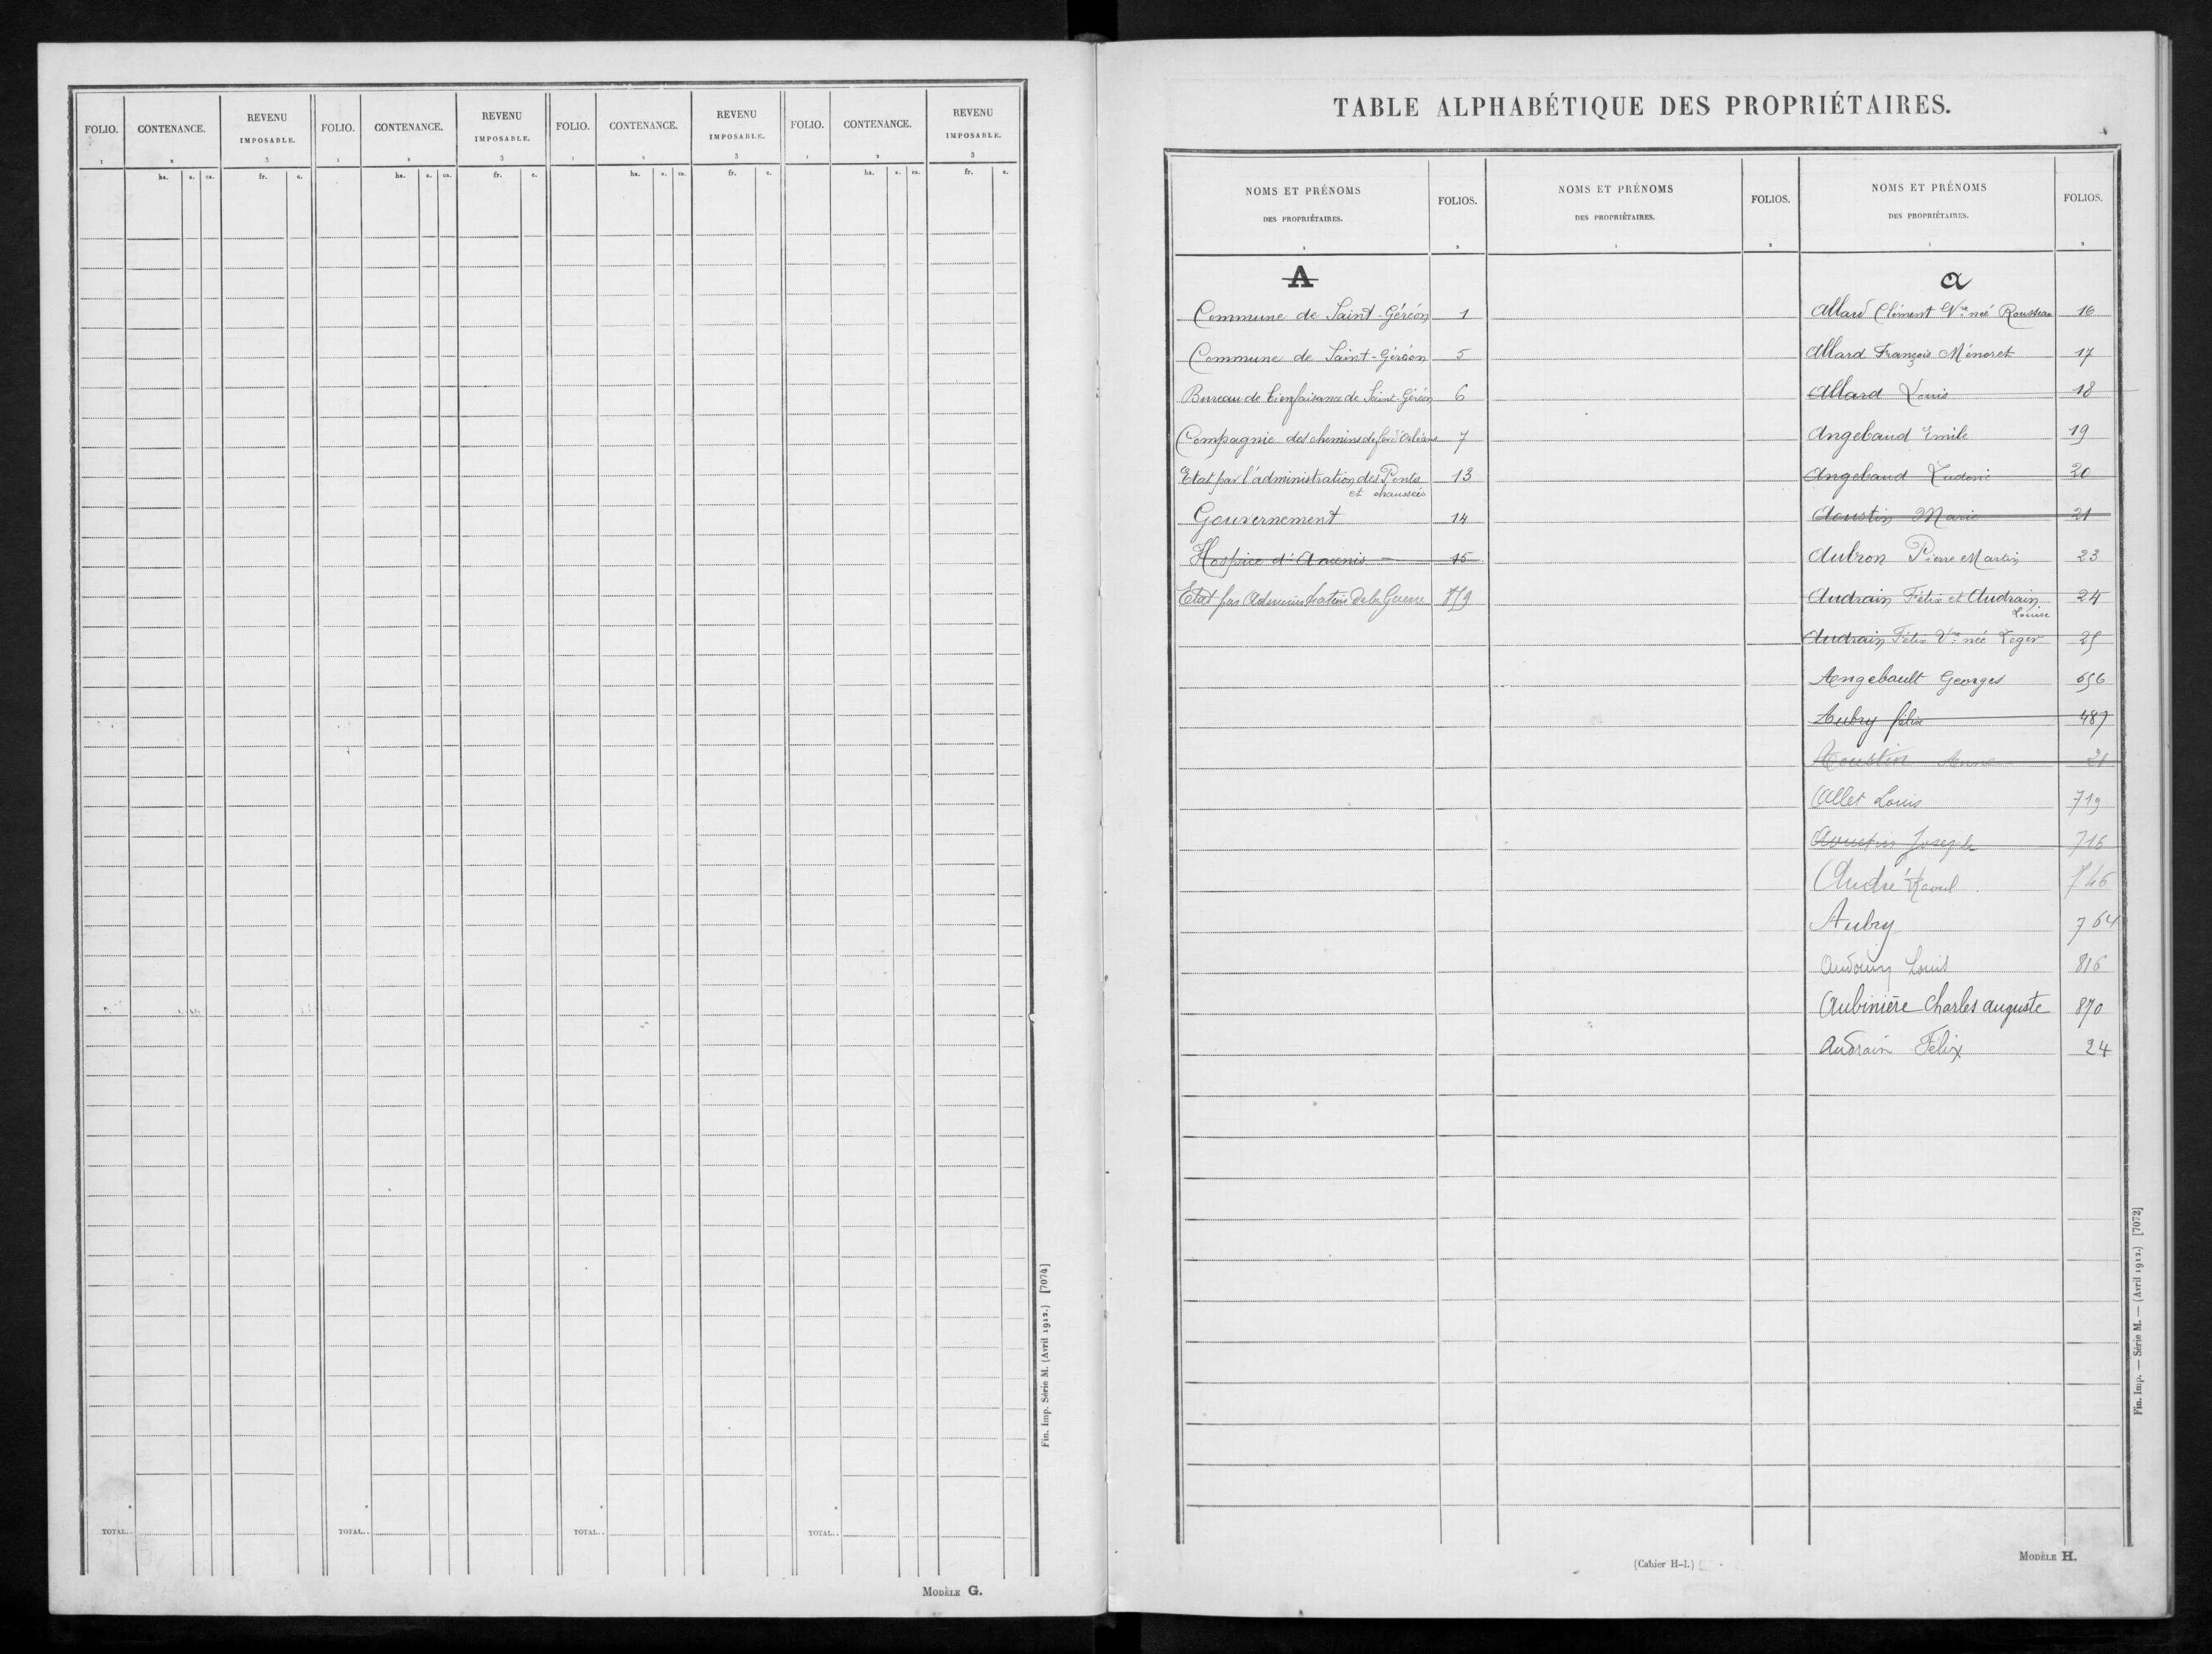 FOLIO. CONTENANCE. REVENU IMPOSABLE. FOLIO. CONTENANCE. REVENU IMPOSABLE. FOLIO. CONTENANCE. REVENU IMPOSABLE. FOLIO. CONTENANCE. REVENU IMPOSABLE.
1 2 3 1 2 3 1 2 3 1 2 3
ha. a. ca. fr. c. ha. a. ca. fr. c. ha. a. ca. fr. c. ha. a. ca. fr. c.
TOTAL.. TOTAL.. TOTAL.. TOTAL..
Fin. Imp. Série M. (Avril 1912.) [7074]
MODÈLE G.
TABLE ALPHABÉTIQUE DES PROPRIÉTAIRES.
NOMS ET PRÉNOMS DES PROPRIÉTAIRES. FOLIOS. NOMS ET PRÉNOMS DES PROPRIÉTAIRES. FOLIOS. NOMS ET PRÉNOMS DES PROPRIÉTAIRES. FOLIOS.
1 2 1 2 1 2
A
Commune de Saint-Géréon 1
Commune de Saint-Géréon 5
Bureau de bienfaisance de Saint-Géréon 6
Compagnie des chemins de fer d'Orléans 7
Etat par l'administration des Ponts 13
et chaussées
Gouvernement 14
Hospice d'Ancenis 15
Etat par Administration de la Guerre 859
a
Allard Clément Vve née Rousseau 16
Allard François Ménoret 17
Allard Louis 18
Angebaud Emile 19
Angebaud Ludovic 20
Aoustin Marie 21
Aubron Pierre Martin 23
Audrain Félix et Audrain 24
Louise
Audrain Félix Vve née Leger 25
Angebault Georges 656
Aubry félix 487
Aoustin Anne 21
Allet Louis 719
Aoustin Joseph 716
André Raoul 746
Aubry 764
Audouin Louis 816
Aubinière Charles auguste 870
Audrain Félix 24
Fin. Imp. — Série M. — (Avril 1912.) [7073]
(Cahier H-I.)
MODÈLE H.